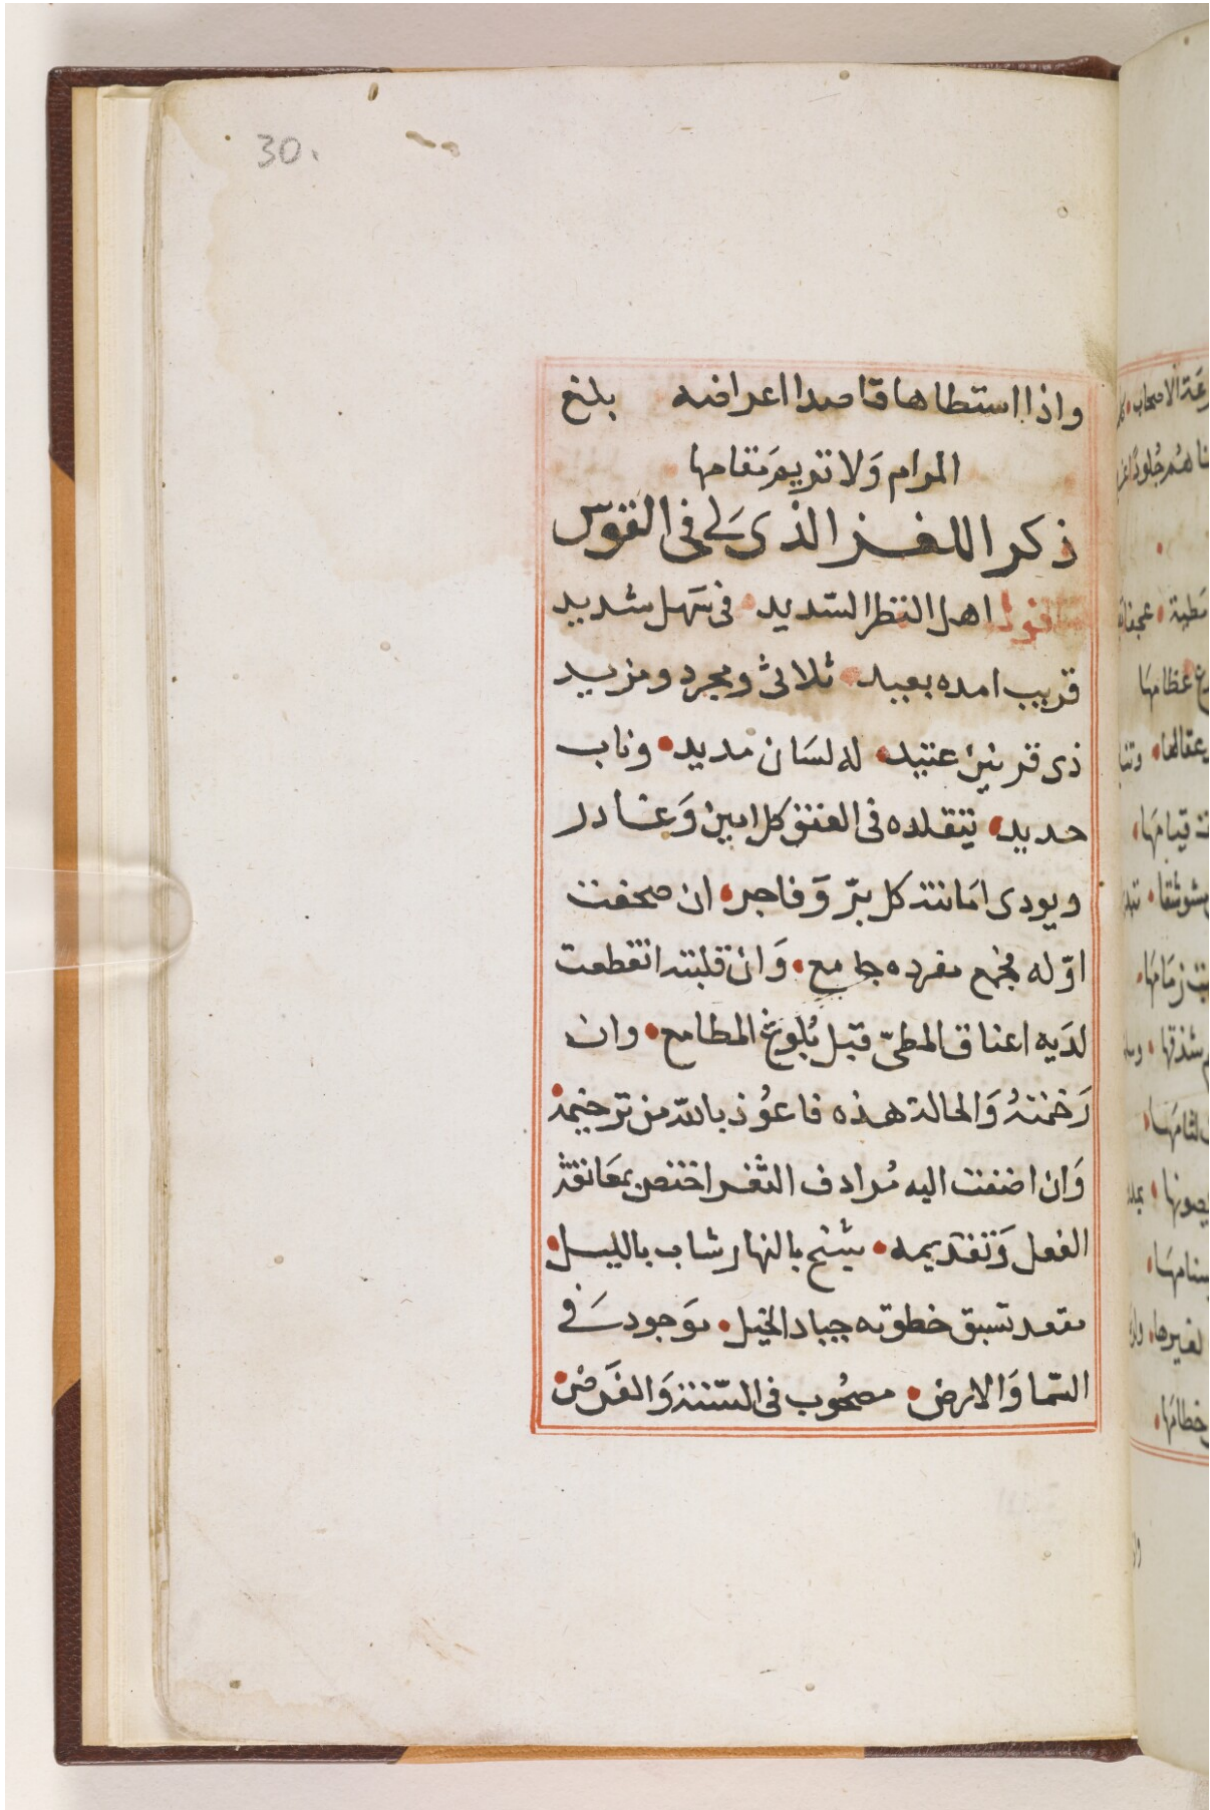 30.
واذا استطاها قاصدا اعرافه بلغ
المرام وَلا تريم مَقامها
ذكر اللغز الذى لے فى القوس
اهل النظر السّديد فى سَهل شديد
قريب امده بعيد ثلاثى ومجرد ومزيد
ذى قرنين عتيد له لسَان مديد وناب
حديد يتقلده فى العنق كل امين وَغادر
ويودى امَانته كل برّ وَفاجر ان صحفت
اوّله فجمع مفرده جامع وَان قلبته انقطعت
لدَيه اعناق المطىّ قبل بُلوغ المطامع وان
رَخمتهُ وَالحالة هذه فاعوُذ بالله من ترخيمه
وَان اضفت اليه مُرادف الثغر اختص بمعَانقة
الفعل وَتقديمه شيخ بالنهار شاب بالليل
مقعد تسبق خطوته جياد الخيل موَجود فے
السّما وَالارض مصحُوب فى السّنة وَالفَرض